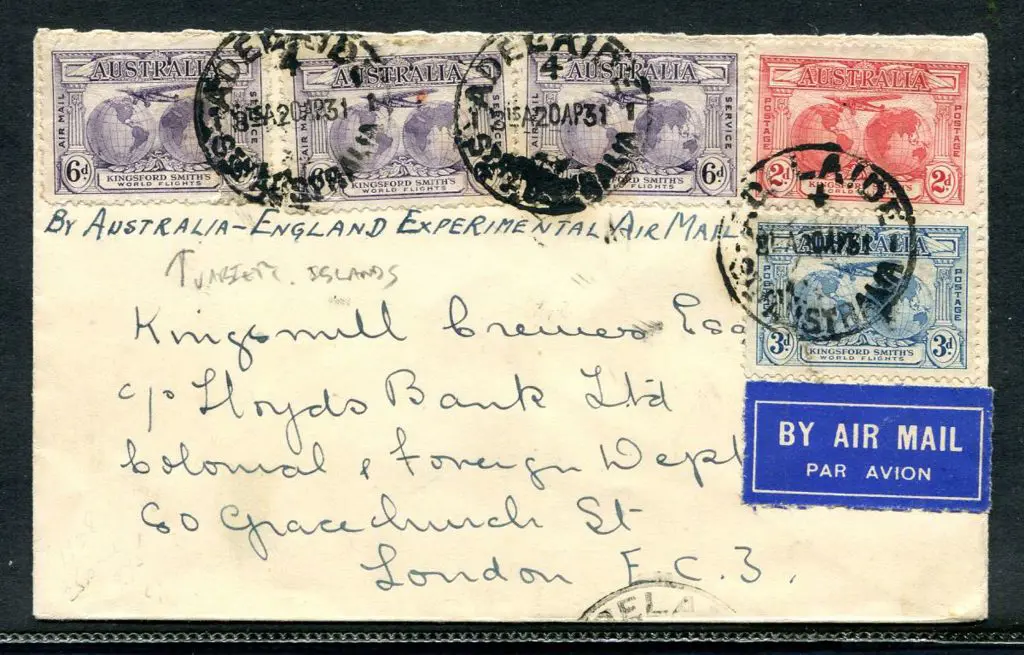 AUSTRALIA AUSTRALIA AUSTRALIA AUSTRALIA
AIR MAIL SERVICE
6d 6d 6d 2d 2d
POSTAGE POSTAGE
KINGSFORD SMITH'S KINGSFORD SMITH'S KINGSFORD SMITH'S
WORLD FLIGHTS WORLD FLIGHTS WORLD FLIGHTS
ADELAIDE 4 20AP31 1 STH AUSTRALIA
ADELAIDE 4 815A20AP31 1 STH AUSTRALIA
ADELAIDE 4 20AP31 1 STH AUSTRALIA
BY AUSTRALIA-ENGLAND EXPERIMENTAL AIR MAIL
AUSTRALIA
POSTAGE POSTAGE
3d 3d
KINGSFORD SMITH'S
WORLD FLIGHTS
↑ VARIETY. ISLANDS
Kingsmill Esq
c/o Lloyds Bank Ltd
Colonial & Foreign Dept
60 Gracechurch St
London E.C.3.
BY AIR MAIL
PAR AVION
ADELA